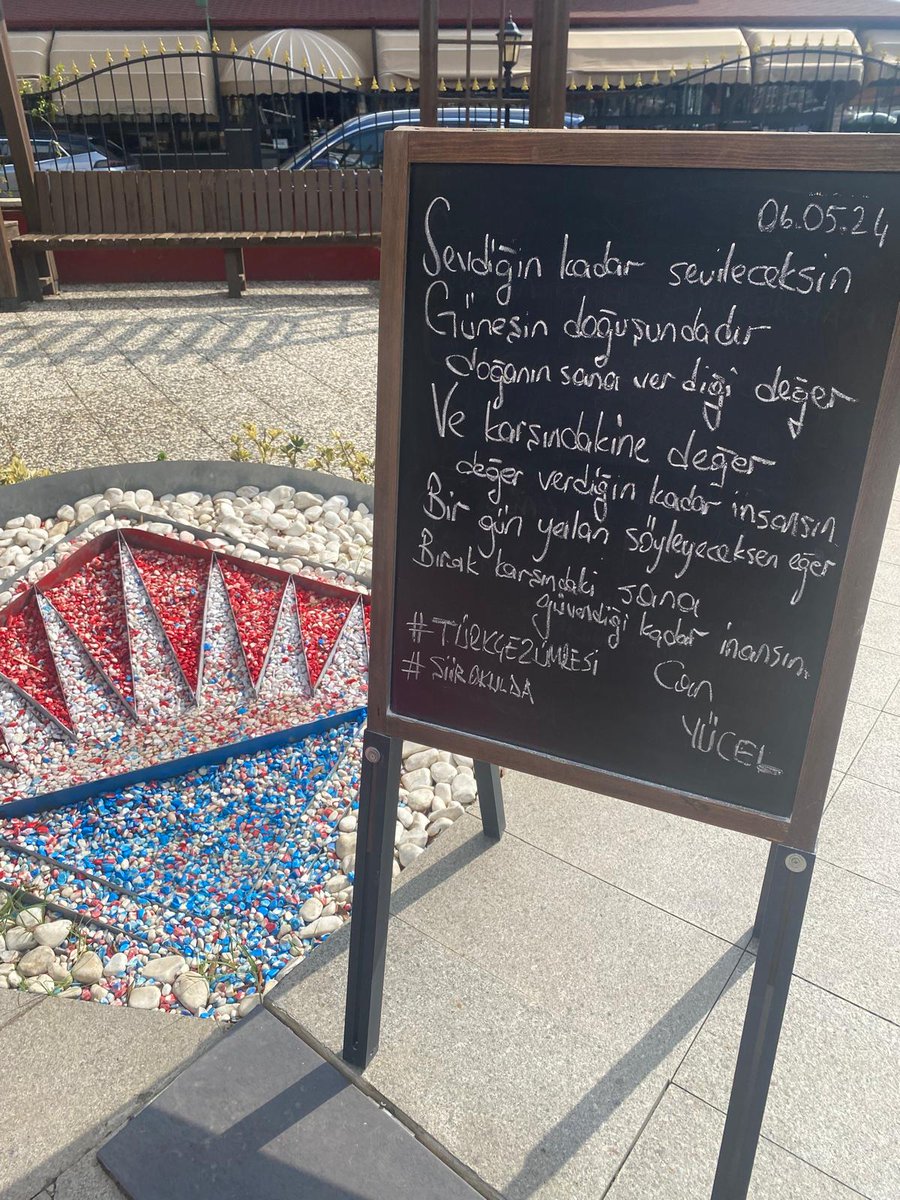 06.05.24
Sevdiğin kadar sevileceksin
Güneşin doğuşundadır
doğanın sana verdiği değer
Ve karşındakine değer
değer verdiğin kadar insansın
Bir gün yalan söyleyeceksen eğer
Bırak karşındaki sana
güvendiği kadar inansın.
#TÜRKÇEZÜMLESİ
#SİİROKULDA
Can
YÜCEL